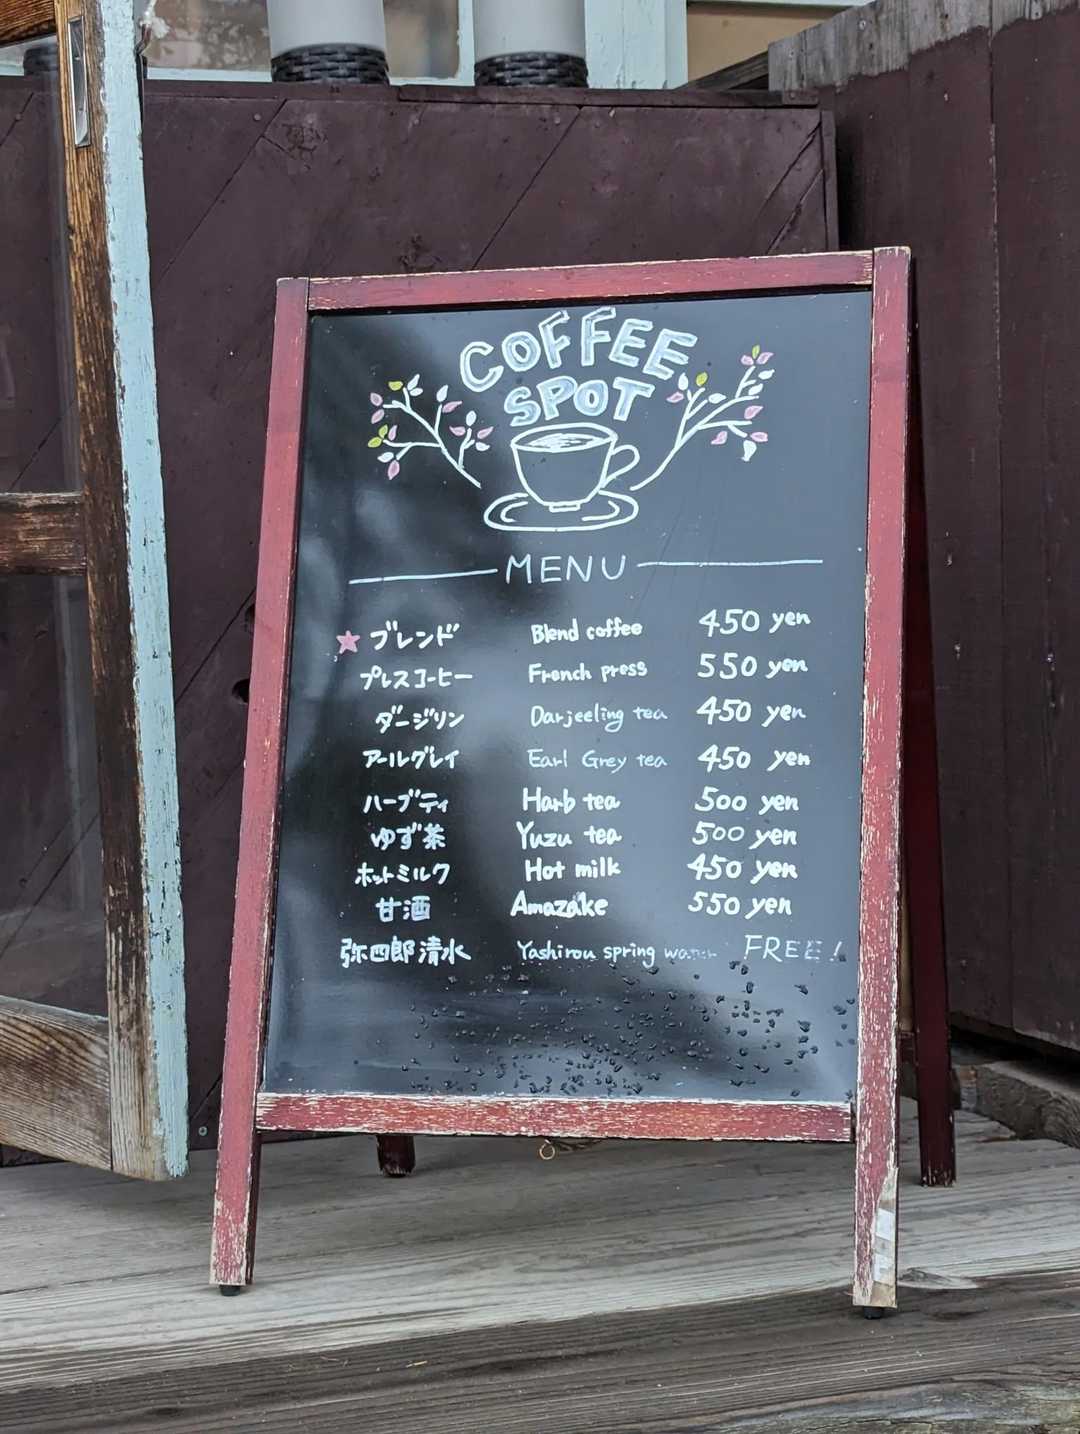 COFFEE
SPOT
MENU
ブレンド Blend coffee 450 yen
プレスコーヒー French press 550 yen
ダージリン Darjeeling tea 450 yen
アールグレイ Earl Grey tea 450 yen
ハーブティ Harb tea 500 yen
ゆず茶 Yuzu tea 500 yen
ホットミルク Hot milk 450 yen
甘酒 Amazake 550 yen
弥四郎清水 Yashirou spring water FREE!